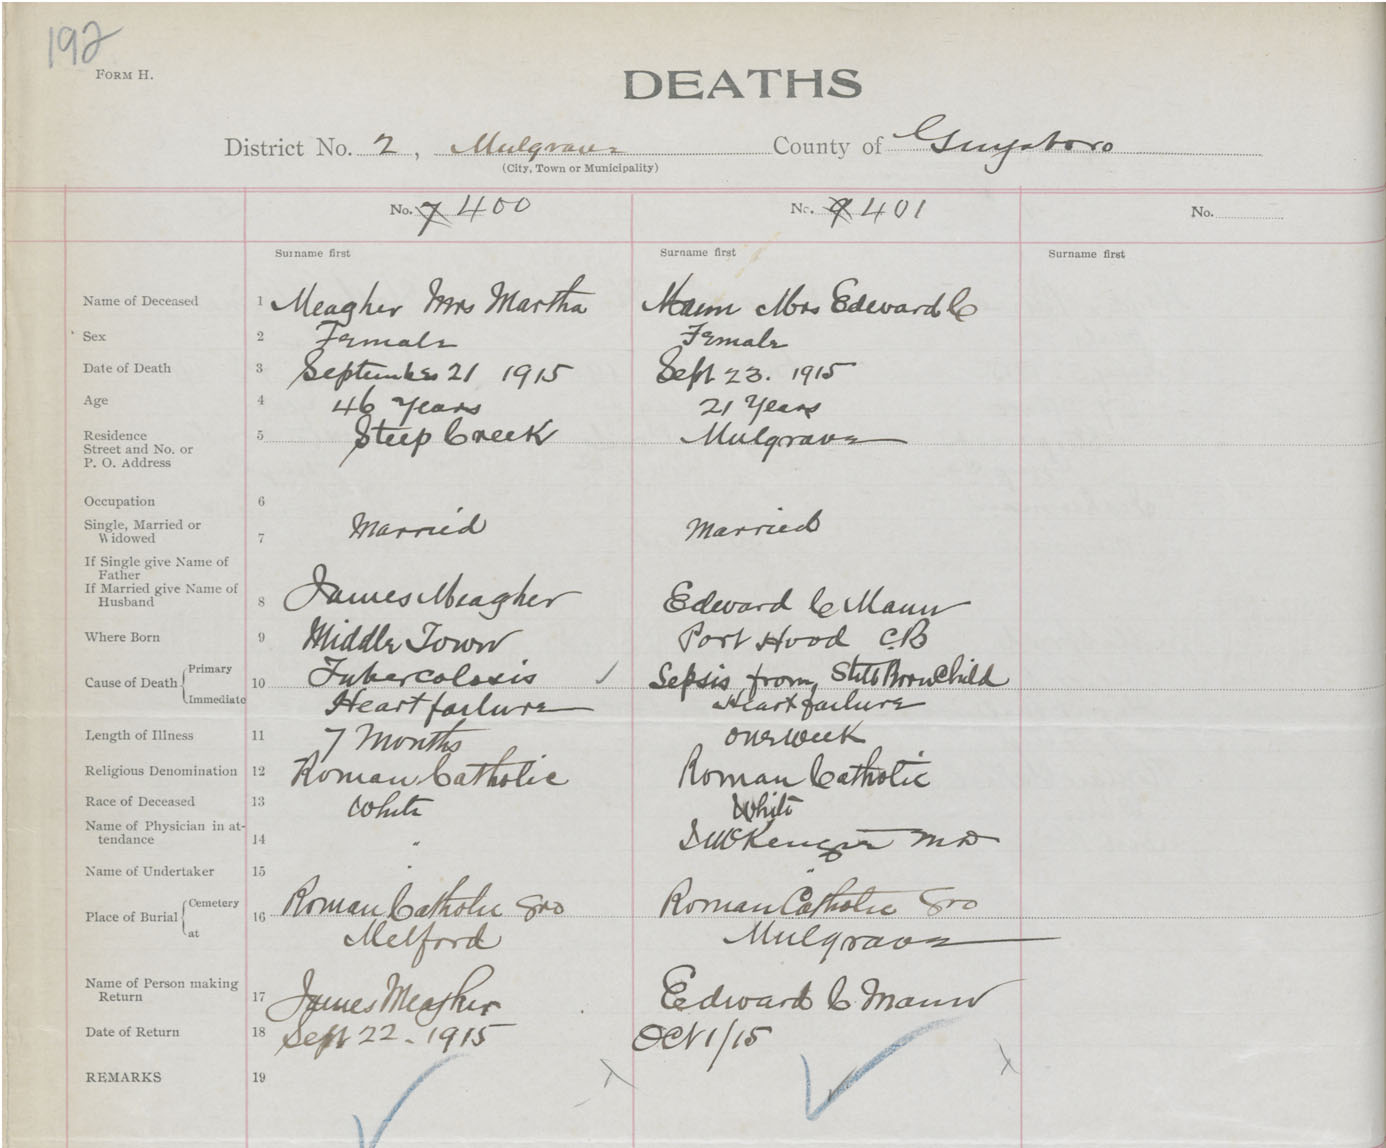 192
FORM H.
DEATHS
District No. 2, Mulgrave County of Guysboro
(City, Town or Municipality)
No. 7 400 No. 9 401 No.
Surname first Surname first Surname first
Name of Deceased 1 Meagher Mrs Martha Mann Mrs Edward C
Sex 2 Female Female
Date of Death 3 September 21 1915 Sept 23. 1915
Age 4 46 Years 21 Years
Residence 5 Steep Creek Mulgrave
Street and No. or
P. O. Address
Occupation 6
Single, Married or
Widowed 7 Married Married
If Single give Name of
Father
If Married give Name of
Husband 8 James Meagher Edward C Mann
Where Born 9 Middle Town Port Hood C.B
Cause of Death Primary 10 Tubercolosis Sepsis from Still Born Child
Immediate Heart failure Heart failure
Length of Illness 11 7 Months one week
Religious Denomination 12 Roman Catholic Roman Catholic
Race of Deceased 13 White White
Name of Physician in at-
tendance 14 " McKenzie MD
Name of Undertaker 15 " "
Place of Burial Cemetery 16 Roman Catholic Gro Roman Catholic Gro
at Melford Mulgrave
Name of Person making
Return 17 James Meagher Edward C Mann
Date of Return 18 Sept 22. 1915 Oct 1/15
REMARKS 19